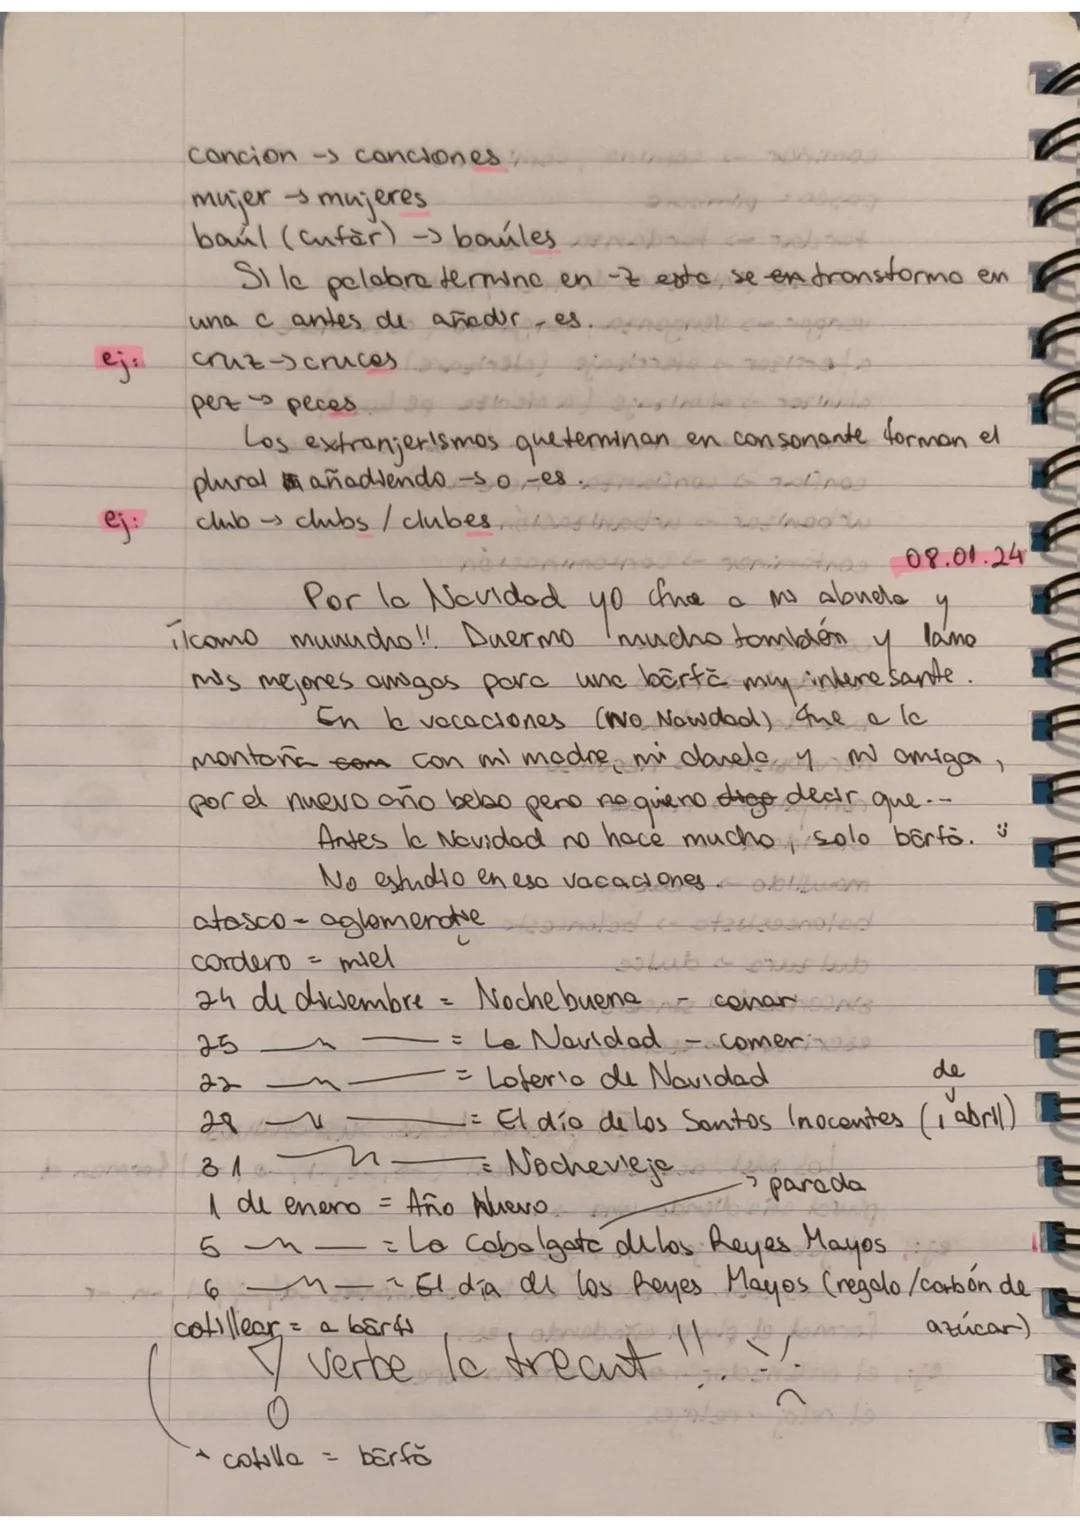 cancion -> canciones
mujer -> mujeres
baúl (cufăr) -> baúles
Si la palabra termina en -z esta se en transforma en
una c antes de añadir -es.
ej: cruz -> cruces
pez -> peces
Los extranjerismos que terminan en consonante forman el
plural añadiendo -s o -es.
ej: club -> clubs / clubes
08.01.24
Por la Navidad yo fue a mi abuela y
¡¡como muuucho!! Duermo mucho también y lamo
mis mejores amigas para una bârfă muy interesante.
En la vacaciones (no Navidad) fue a la
montaña com con mi madre, mi abuela y mi amiga,
por el nuevo año bebo pero no quiero digo decir que...
Antes la Navidad no hace mucho, solo bârfă.
No estudio en esa vacaciones.
atasco - aglomerație
cordero = miel
24 de diciembre = Nochebuena - cenar
25 = La Navidad - comer
22 = Loteria de Navidad
28 = El día de los Santos Inocentes (1 de abril)
31 = Nochevieja
1 de enero = Año Nuevo -> parada
5 = La Cabalgata de los Reyes Mayos
6 = El día de los Reyes Mayos (regalo/carbón de
azúcar)
cotillear = a bârfi
! verbe la trecut!!
* cotilla = bârfă